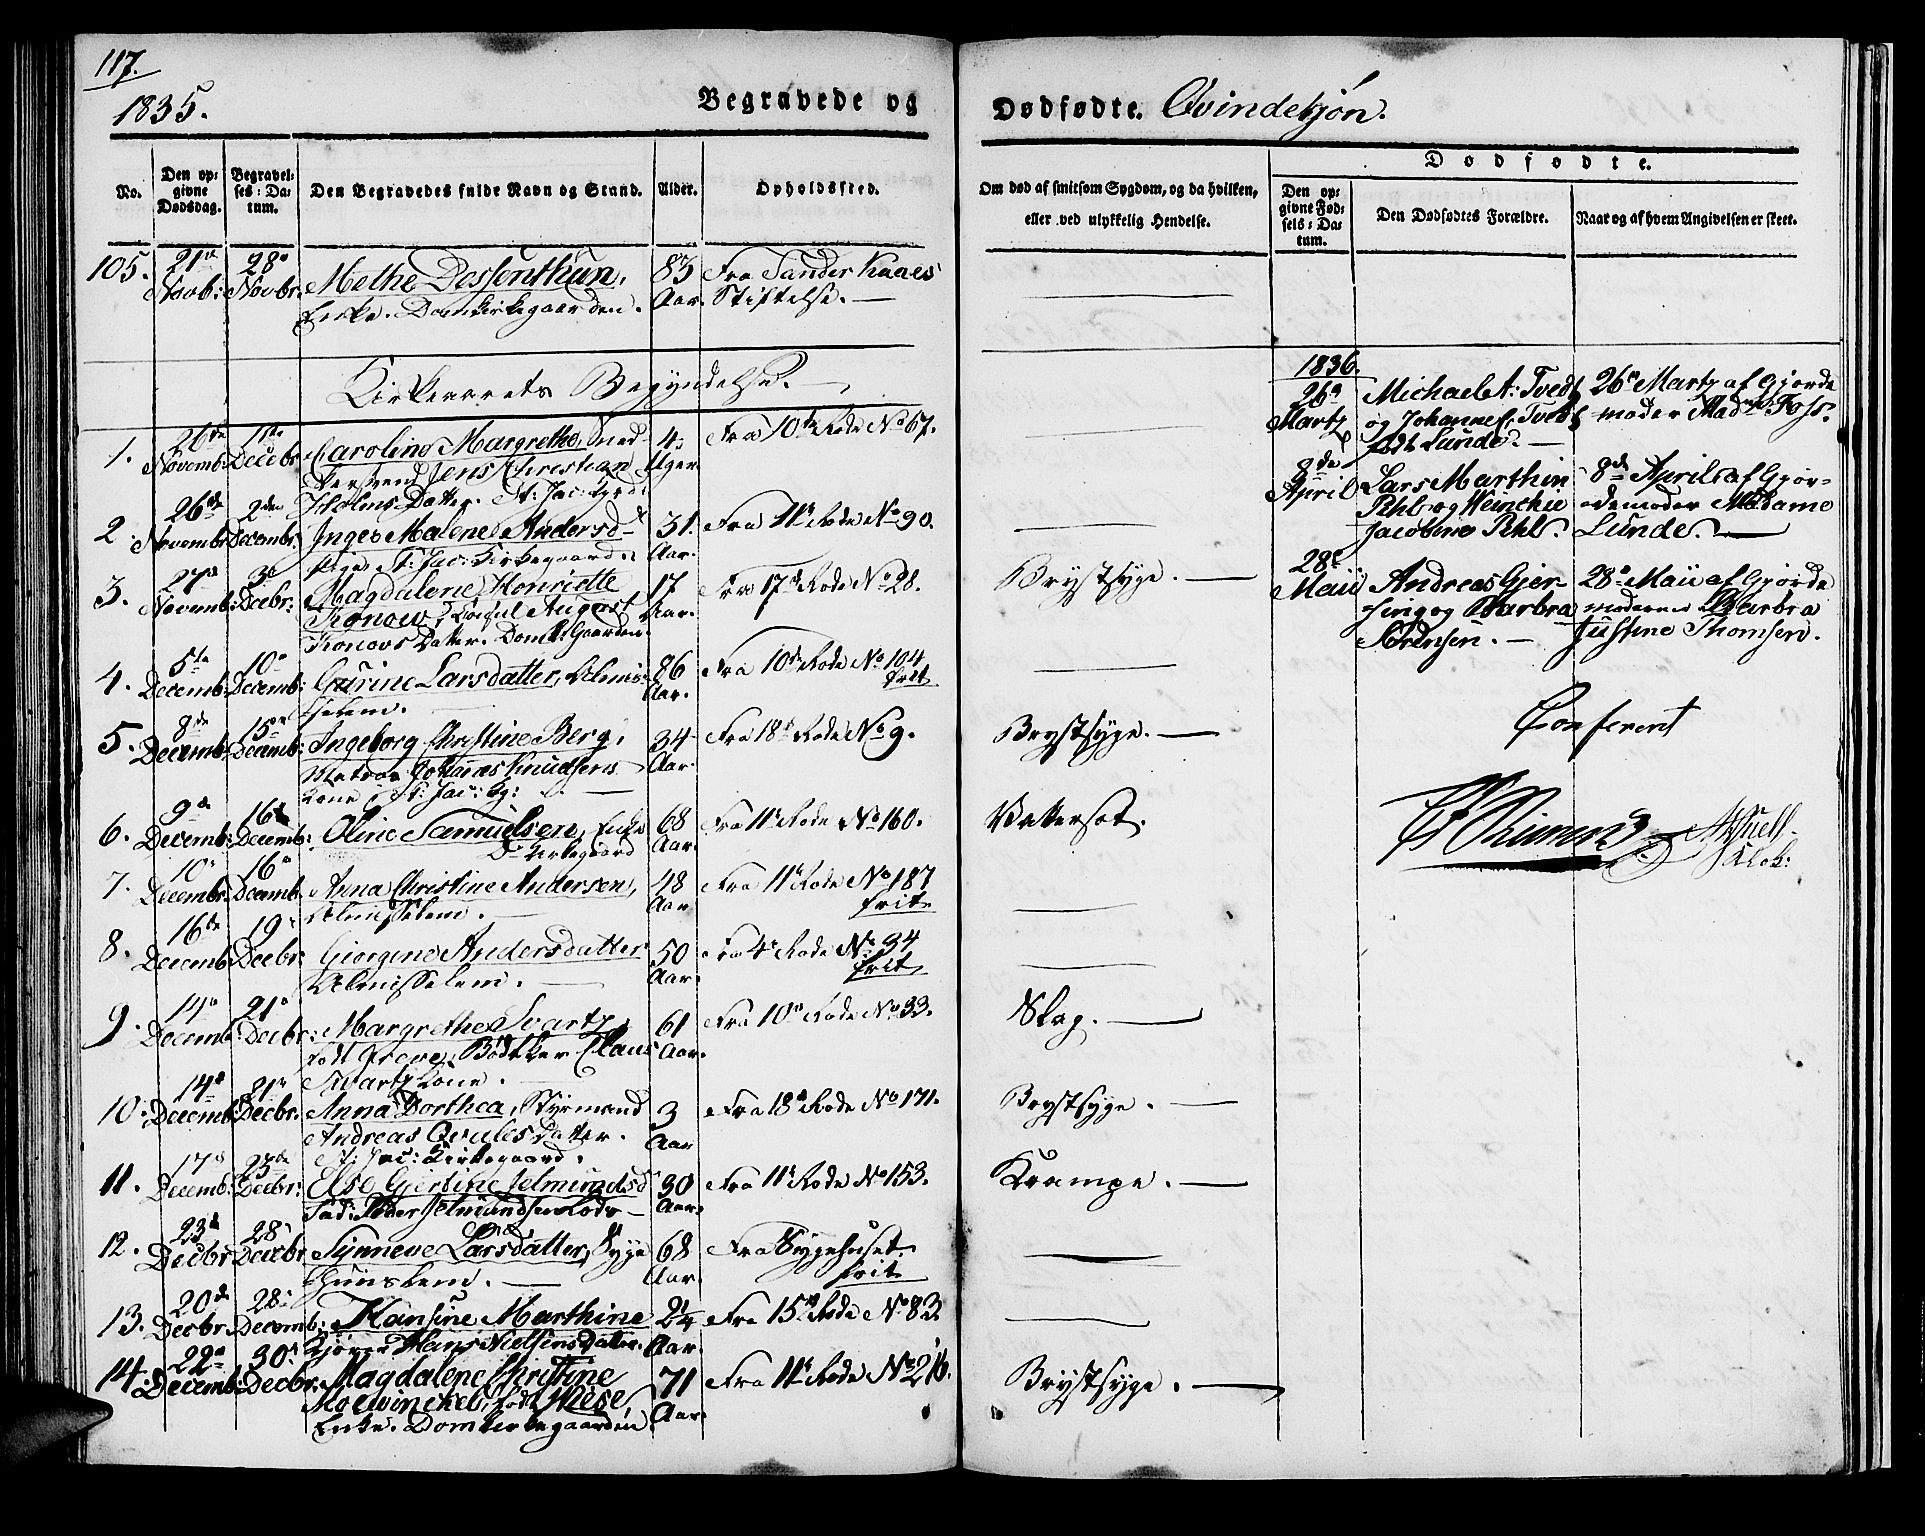 117.
1835.
Begravede og Dødfødte. Qvindekjøn.
Dødfødte.
No.
Den op-
givne
Dødsdag.
Begravel-
ses-Da-
tum.
Den Begravedes fulde Navn og Stand.
Alder.
Opholdssted.
Om død af smitsom Sygdom, og da hvilken,
eller ved ulykkelig Hendelse.
Den op-
givne Fød-
sels-Da-
tum.
Den Dødfødtes Forældre.
Naar og af hvem Angivelsen er skeet.
105. 21de 28de Methe Dessenthun, 83 Fra Sander Kaaes
Novb: Novbr. Enke. Domkirkegaarden. Aar. Stiftelse.
Kirkeaarets Begyndelse.
1. 26de 1ste Caroline Margrethe, Sned- 4 Fra 10de Rode No 67.
Novemb: Decebr. Jens Christian Uger.
Holms Datter. St: Jac: Kgrd:
2. 26de 2den Inger Malene Andersd 31. Fra 11te Rode No 90.
Novembr Decembr. Pige St: Jac: Kirkegaard. Aar.
3. 27de 3de Magdalene Henriette 17 Fra 17de Rode No 28. Brystsyge.
Novemb: Decbr: Konow, Consul August Aar.
Konows Datter. Domk: Gaarden.
4. 5te 10de Gurine Larsdatter, Almis- 86 Fra 10de Rode No 104
Decemb: Decemb: selem. Aar. frit
5. 8de 15de Ingeborg Christine Berg, 34 Fra 18de Rode No 9. Brystsyge.
Decemb: Decemb: Matros Johannes Knudsens Aar.
Kone, St: Jac: Kg:
6. 9de 16de Oline Samuelsen, Enke 68 Fra 11te Rode No 160. Vattersot.
Decemb: Decemb: Do Kirkegaard Aar.
7. 10de 16de Anna Christine Andersen, 48 Fra 11te Rode No 187
Decembr: Decemb. Almisselem. Aar. frit
8. 16de 19de Giørgine Andersdatter 50 Fra 4de Rode No 34
Decemb: Decbr: Almisselem. Aar. frit
9. 14de 21de Margrethe Svartz, 61 Fra 10de Rode No 33. Slag.
Decemb: Decbr: født Greve, Bødtker Claus Aar.
Svartz Kone.
10. 14de 21de Anna Dorthea, Styrmand 3 Fra 18de Rode No 171. Brystsyge.
Decemb: Decbr. Andreas Qvules Datter. Aar
St: Jac: Kirkegaard.
11. 17de 23de Else Gjertine Jelmundsd 30 Fra 11te Rode No 153. Krampe.
Decemb: Decbr: Aar.
12. 23de 28de Synneve Larsdatter, Syge- 68 Fra Sygehuset.
Decbr Decebr huuslem. Aar. frit
13. 20de 28de Hansine Marthine 24 Fra 15de Rode No 83.
Decbr. Decemb: Hans Nielsens dater. Aar.
14. 22de 30te Magdalene Christine 71 Fra 11te Rode No 216. Brystsyge.
Decemb: Decbr: Mowinckel, født Wese, Aar.
Enke. Domkirkegaarden.
1836.
26de Michael A: Tvedt 26de Martz af Gjorde
Martz og Johanne S. Tvedt moder Madme Foss.
født Lunde.
8de Lars Marthin 8de April af Gjor-
April Pihl og Weinckie demoder Madame
Jacobine Pihl. Lunde.
28de Andreas Gjer- 28de Maii af Gjorde
Maii sing og Barbra moderen Barbra
Sørensen. Justine Thomsen.
Conferert
Klok: